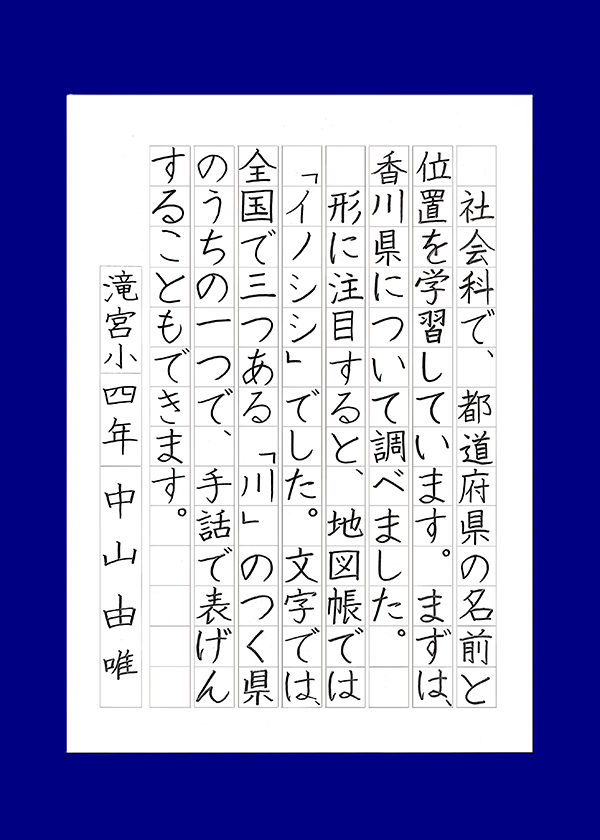 社会科で、都道府県の名前と
位置を学習しています。まずは、
香川県について調べました。
　形に注目すると、地図帳では
「イノシシ」でした。文字では、
全国で三つある「川」のつく県
のうちの一つで、手話で表げん
することもできます。
滝宮小四年　中山由唯